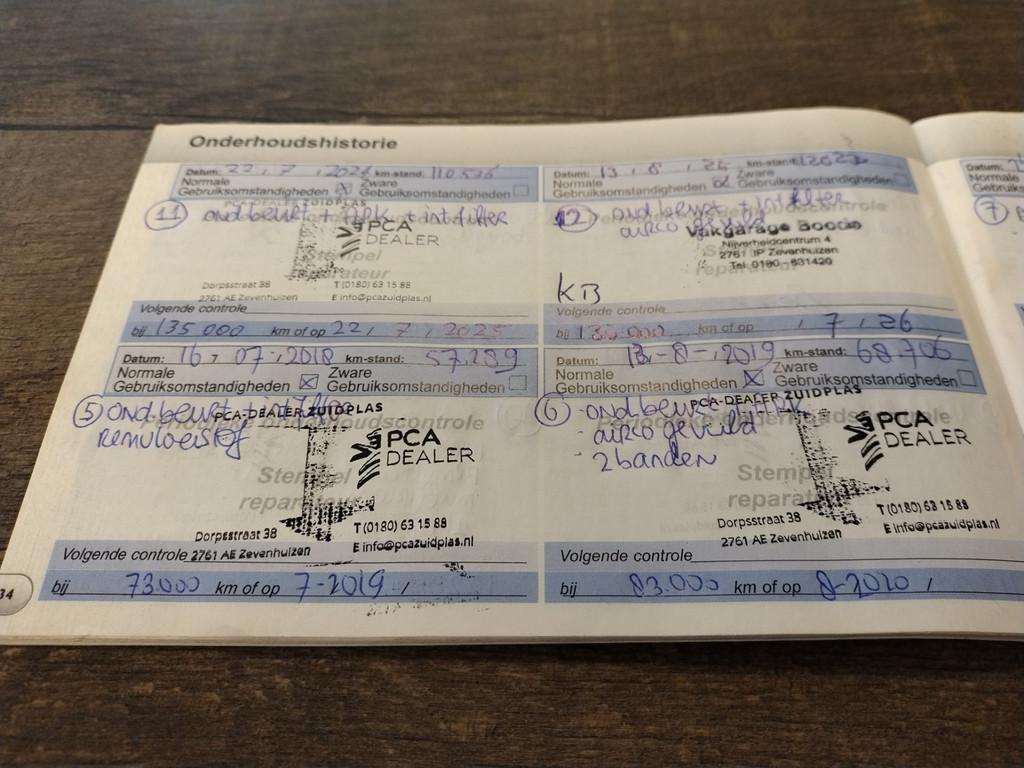 Onderhoudshistorie
Datum: 22, 7, 2024 km-stand: 110 536
Normale Gebruiksomstandigheden Zware Gebruiksomstandigheden
11 ond beurt + APK + int filter
PCA DEALER
Stempel
reparateur
Dorpsstraat 38 T (0180) 63 15 88
2761 AE Zevenhuizen E info@pcazuidplas.nl
Volgende controle
bij 135 000 km of op 22, 7, 2025
Datum: 13, 8, 25 km-stand:
Normale Gebruiksomstandigheden Zware Gebruiksomstandigheden
12 ond beurt + int filter
airco gevuld
Vakgarage
Nijverheidcentrum 4
2761 JP Zevenhuizen
Tel. 0180 - 631420
KB
Volgende controle
bij km of op , 7, 26
Datum: 16, 07, 2018 km-stand: 57.289
Normale Gebruiksomstandigheden Zware Gebruiksomstandigheden
5 ond.beurt + int filter
remvloeistof
PCA-DEALER ZUIDPLAS
Periodieke onderhoudscontrole
PCA DEALER
Stempel
reparateur
Dorpsstraat 38 T (0180) 63 15 88
2761 AE Zevenhuizen E info@pcazuidplas.nl
Volgende controle
bij 73.000 km of op 7-2019 /
Datum: 13-8-, 2019 km-stand: 68.706
Normale Gebruiksomstandigheden Zware Gebruiksomstandigheden
6 - ond beurt + APK
- airco gevuld
- 2 banden
PCA-DEALER ZUIDPLAS
PCA DEALER
Stempel
reparateur
Dorpsstraat 38 T (0180) 63 15 88
2761 AE Zevenhuizen E info@pcazuidplas.nl
Volgende controle
bij 83.000 km of op 8-2020 /
34
Datum:
Normale
7